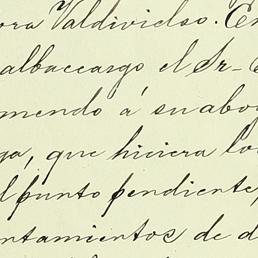 ora Valdivielso. En
albaceazgo el Sr-
mendó á su abo
ga, que hiciera lo
l punto pendiente,
ntamientos de d